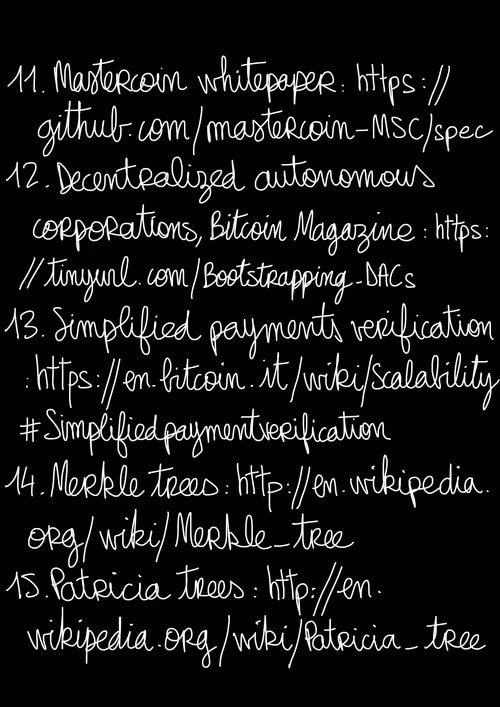 11. Mastercoin whitepaper: https://
github.com/mastercoin-MSC/spec
12. Decentralized autonomous
corporations, Bitcoin Magazine: https:
//tinyurl.com/Bootstrapping-DACs
13. Simplified payments verification
:https://en.bitcoin.it/wiki/Scalability
#Simplifiedpaymentverification
14. Merkle trees: http://en.wikipedia.
org/wiki/Merkle_tree
15. Patricia trees: http://en.
wikipedia.org/wiki/Patricia_tree